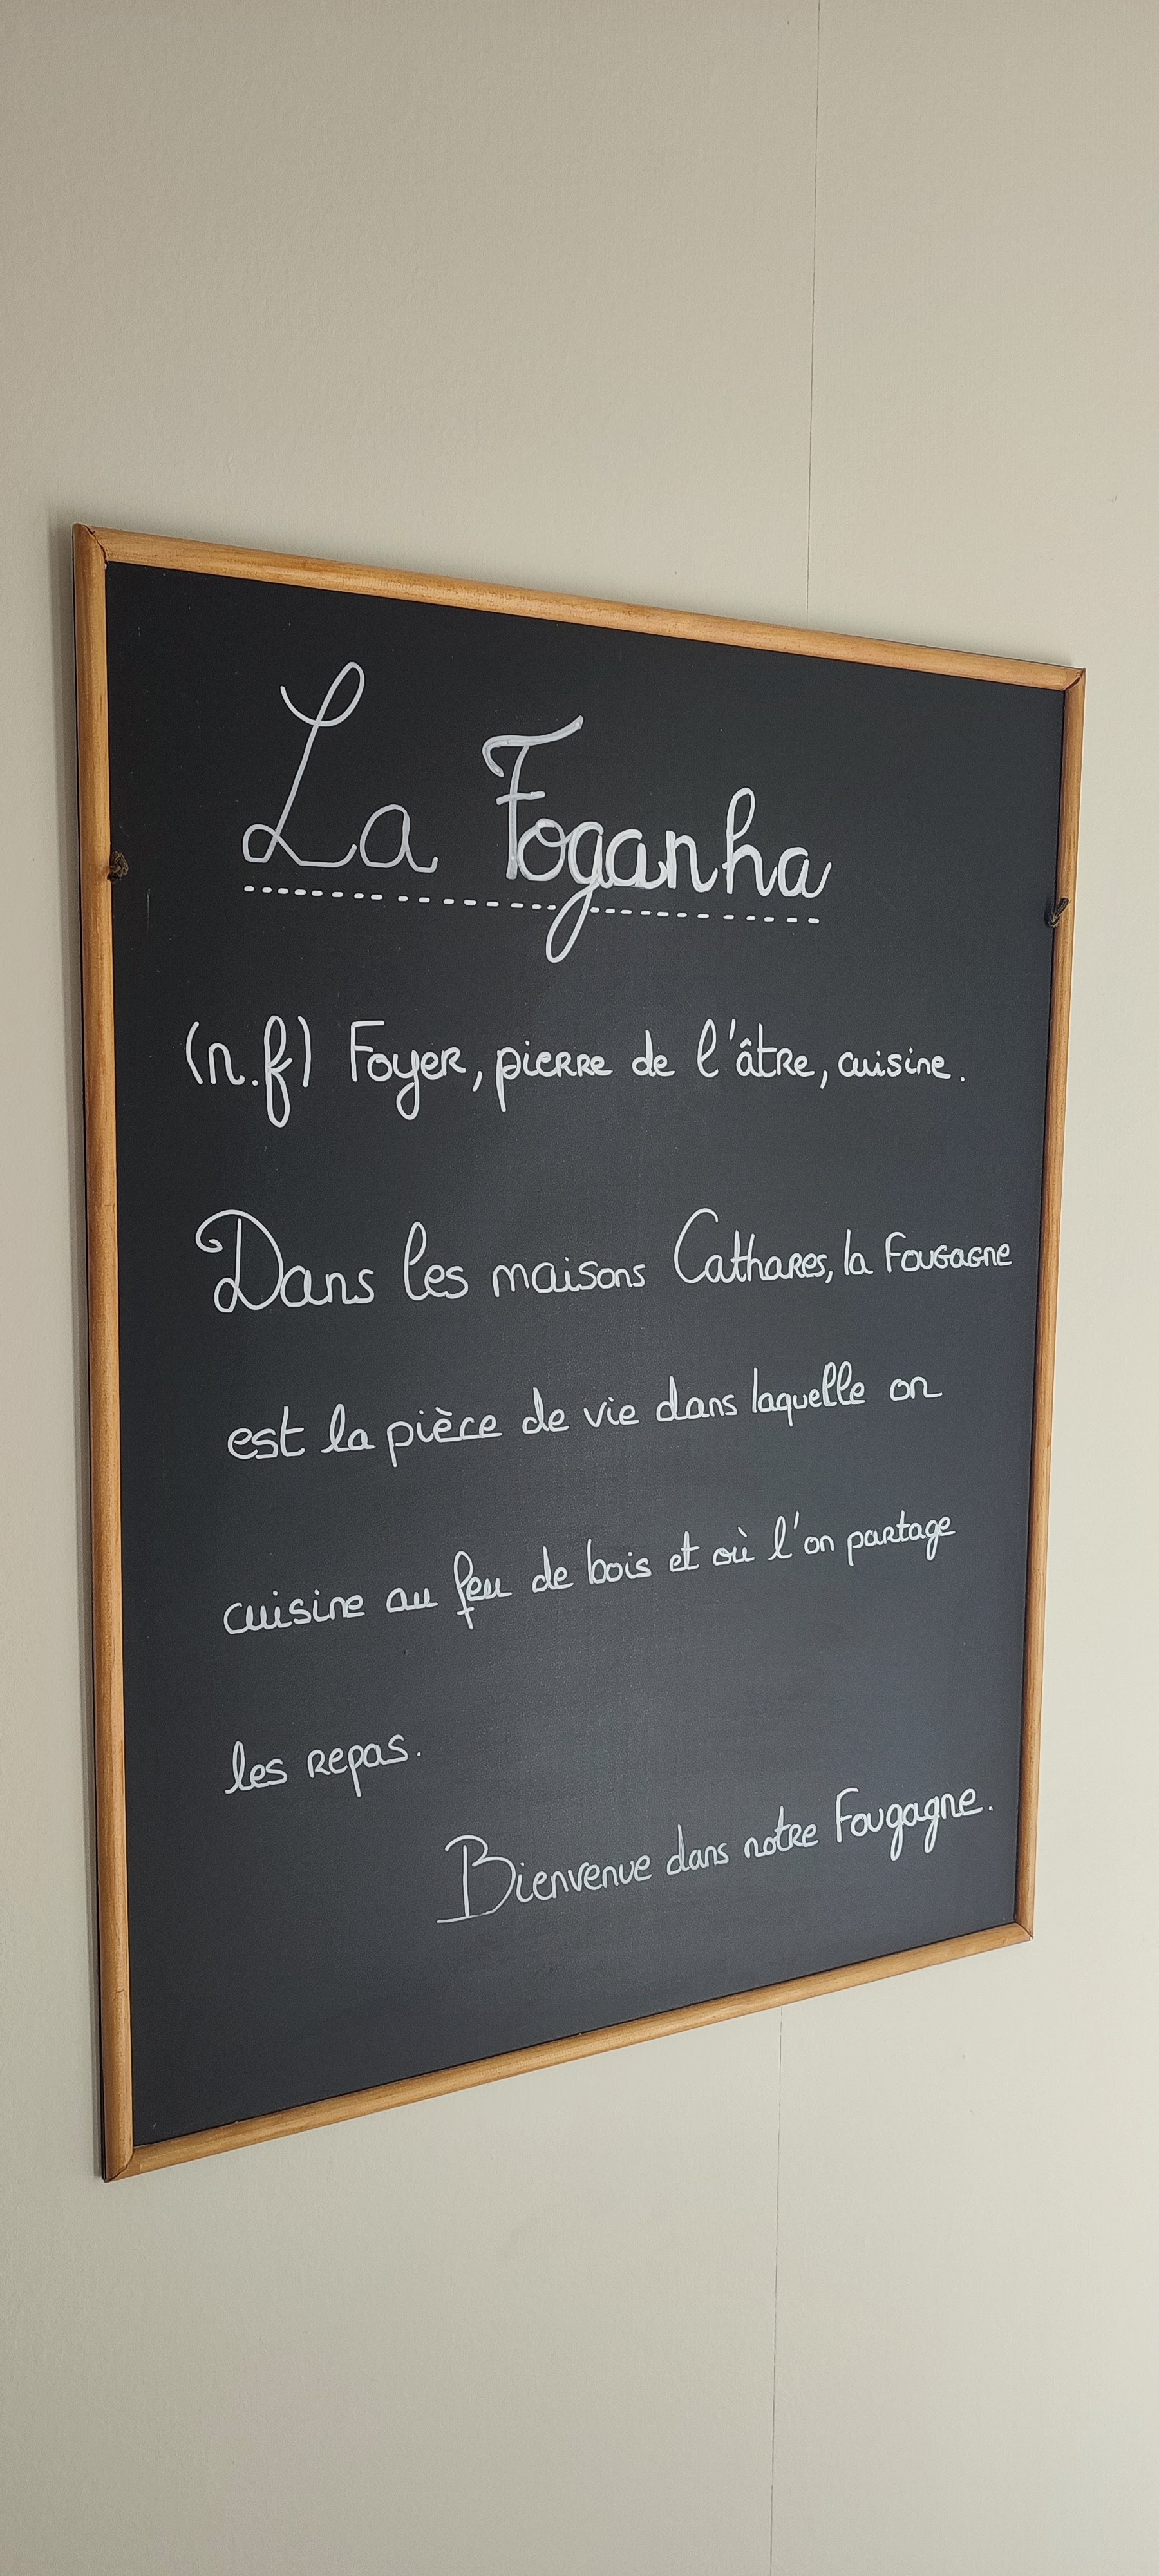 La Foganha
(n.f) Foyer, pierre de l'âtre, cuisine.
Dans les maisons Cathares, la Fougagne
est la pièce de vie dans laquelle on
cuisine au feu de bois et où l'on partage
les repas.
Bienvenue dans notre Fougagne.